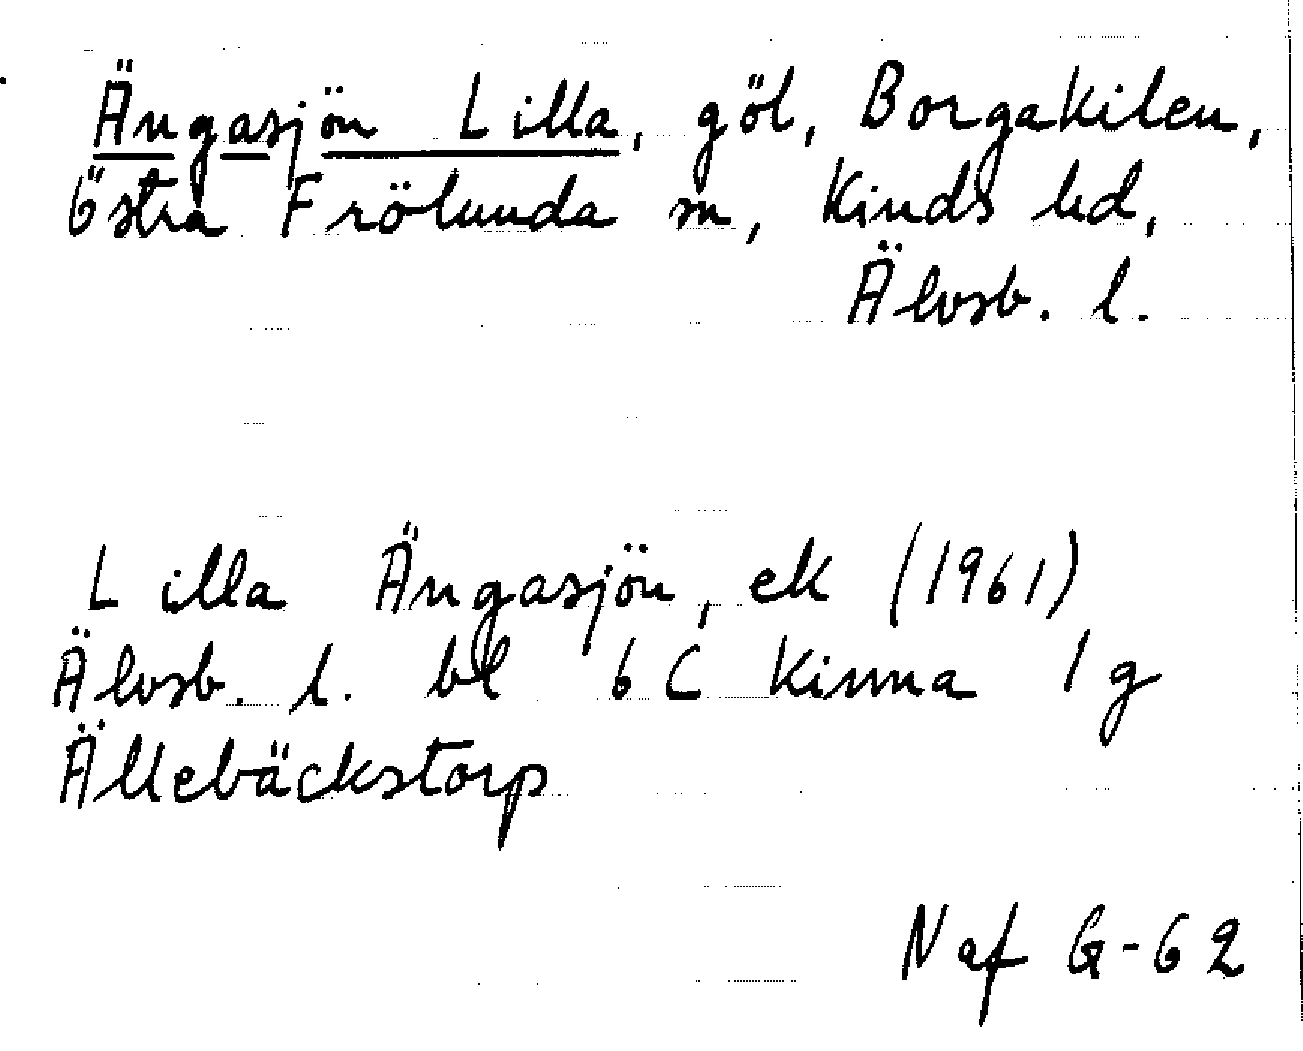 Ängasjön Lilla, göl, Borgakilen,
Östra Frölunda sn, Kinds hd,
Älvsb. l.
Lilla Ängasjön, ek (1961)
Älvsb. l. bl 6 C Kinna 1 g
Ällebäckstorp
Naf G-62